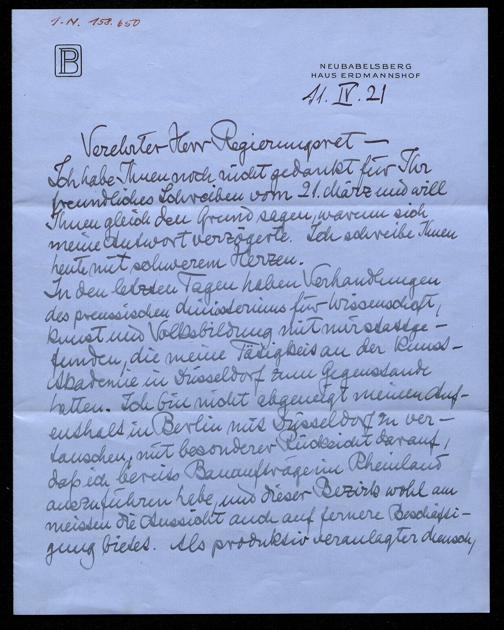 I.-N. 158.650
PB
NEUBABELSBERG
HAUS ERDMANNSHOF
11. IV. 21
Verehrter Herr Regierungsret —
Ich habe Ihnen noch nicht gedankt für Ihr
freundliches Schreiben vom 21. März und will
Ihnen gleich den Grund sagen, warum sich
meine Antwort verzögerte. Ich schreibe Ihnen
heute mit schwerem Herzen.
In den letzten Tagen haben Verhandlungen
des preussischen Ministeriums für Wissenschaft,
Kunst und Volksbildung mit mir stattge-
funden, die meine Tätigkeit an der Kunst-
akademie in Düsseldorf zum Gegenstande
hatten. Ich bin nicht abgeneigt meinen Auf-
enthalt in Berlin mit Düsseldorf zu ver-
tauschen, mit besonderer Rücksicht darauf,
daß ich bereits Bauaufträge im Rheinland
auszuführen habe, und dieser Bezirk wohl am
meisten die Aussicht auch auf fernere Beschäfti-
gung bietet. Als produktiv veranlagter Mensch,